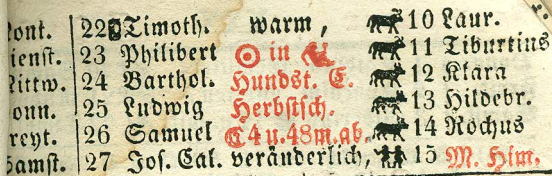 ont. 22 Timoth. warm, 10 Laur.
ienst. 23 Philibert ☉ in 11 Tiburtius
ittw. 24 Barthol. Hundst. E. 12 Klara
onn. 25 Ludwig Herbstsch. 13 Hildebr.
reyt. 26 Samuel ☾ 4 u. 48 m. ab. 14 Rochus
amst. 27 Jos. Cal. veränderlich, 15 M. Him.